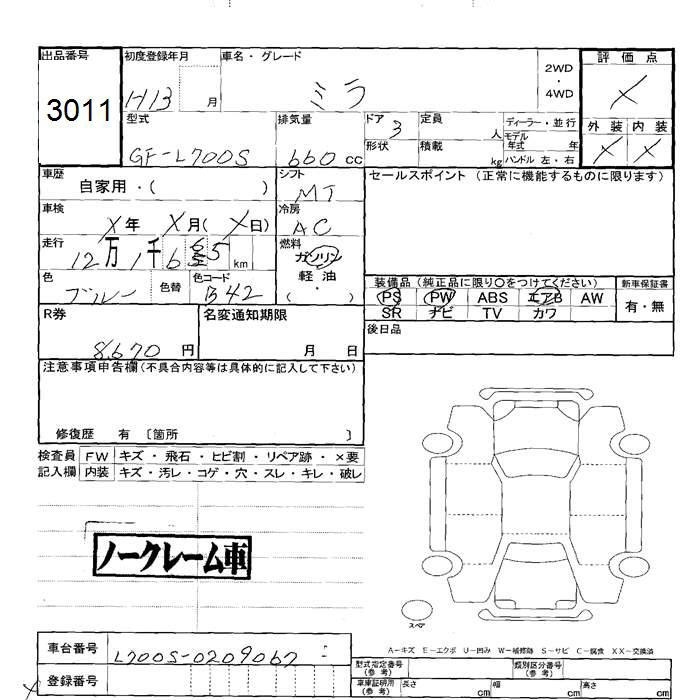 出品番号 初度登録年月 車名・グレード 評価点
3011 H13 月 ミラ 2WD ・ 4WD X
型式 排気量 ドア 3 定員 人 ディーラー・並行 外装 内装
GF-L700S 660 cc 形状 積載 kg モデル年式 年 ハンドル 左・右 X X
車歴 自家用・( ) シフト MT セールスポイント (正常に機能するものに限ります)
車検 X年 X月 (X日) 冷房 AC
走行 12万1千6 5 km 燃料 ガソリン 軽油 ( ・ )
色 ブルー 色替 色コード B42 装備品 (純正品に限り○をつけてください) 新車保証書
PS PW ABS エアB AW 有・無
SR ナビ TV カワ
R券 8,670 円 名変通知期限 月 日 後日品
注意事項申告欄 (不具合内容等は具体的に記入して下さい)
修復歴 有 〔箇所 〕
検査員 FW キズ・飛石・ヒビ割・リペア跡・×要
記入欄 内装 キズ・汚レ・コゲ・穴・スレ・キレ・破レ
ノークレーム車
スペア
A-キズ E-エクボ U-凹み W-補修跡 S-サビ C-腐食 XX-交換済
車台番号 L700S-0209067
型式指定番号 (参考) 類別区分番号 (参考)
登録番号 車庫証明用 (参考) 長さ cm 幅 cm 高さ cm